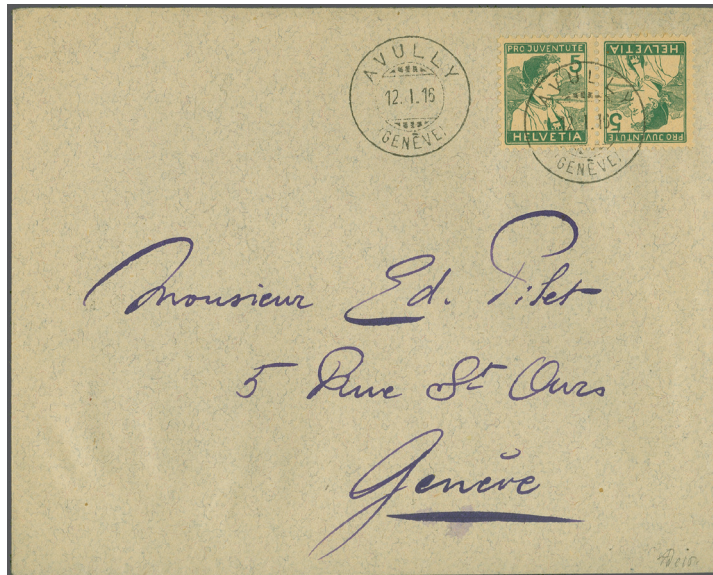 AVULLY
12.I.16
(GENÈVE)
PRO JUVENTUTE
5
HELVETIA
HELVETIA
5
PRO JUVENTUTE
AVULLY
12.I.16
(GENÈVE)
Monsieur Ed. Pilet
5 Rue St Ours
Genève